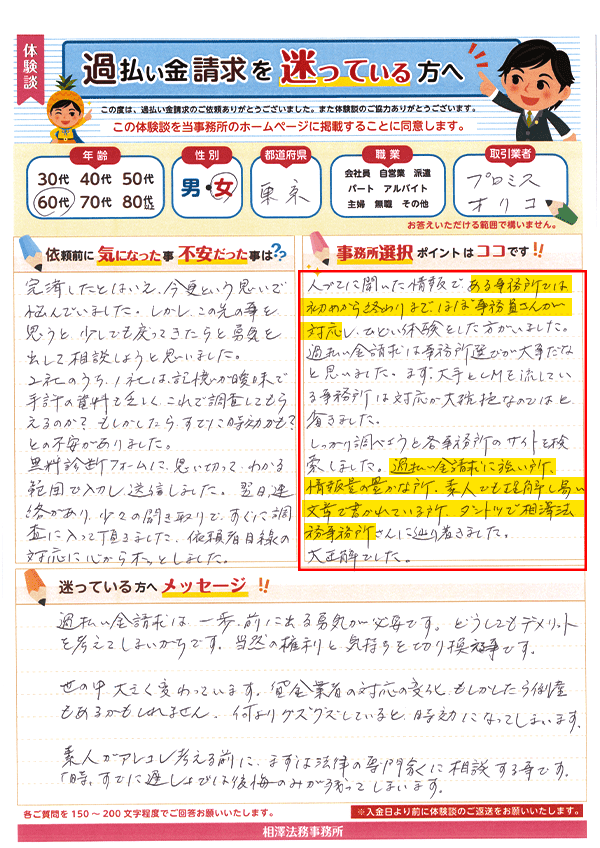 体験談
過払い金請求を迷っている方へ
この度は、過払い金請求のご依頼ありがとうございました。また体験談のご協力ありがとうございます。
この体験談を当事務所のホームページに掲載することに同意します。
年齢
30代 40代 50代
60代 70代 80代以上
性別
男・女
都道府県
東京
職業
会社員 自営業 派遣
パート アルバイト
主婦 無職 その他
取引業者
プロミス
オリコ
お答えいただける範囲で構いません。
依頼前に気になった事 不安だった事は??
完済したとはいえ、今更という思いで
悩んでいました。しかし、この先の事を
思うと、少しでも戻ってきたらと勇気を
出して相談しようと思いました。
2社のうち、1社は記憶が曖昧で
手許の資料も乏しく、これで調査してもら
えるのか? もしかしたら、すでに時効かも?
との不安がありました。
無料診断フォームに、思い切って、わかる
範囲で入力し、送信しました。翌日、連
絡があり、少々の聞き取りで、すぐに調
査に入って頂きました。依頼者目線の
対応に心からホッとしました。
事務所選択 ポイントはココです!!
人づてに聞いた情報で、ある事務所では
初めから終わりまで、ほぼ事務員さんが
対応し、ひどい体験をした方がいました。
過払い金請求は事務所選びが大事だな
と思いました。まず、大手としCMを流してい
る事務所は対応が大雑把なのではと、
省きました。
しっかり調べようと各事務所のサイトを検
索しました。過払い金請求に強い所、
情報量の豊かな所、素人でも理解し易い
文章で書かれている所、ダントツで相澤法
務事務所さんに辿り着きました。
大正解でした。
迷っている方へメッセージ!!
過払い金請求は、一歩、前に出る勇気が必要です。どうしてもデメリット
を考えてしまいがちです。当然の権利と、気持ちを切り換える事です。
世の中、大きく変わっています。貸金業者の対応の変化、もしかしたら倒産
もあるかもしれません。何よりグズグズしていると、時効になってしまいます。
素人がアレコレ考える前に、まずは法律の専門家に相談する事です。
「時、すでに遅し」では後悔のみが残ってしまいます。
各ご質問を 150～200 文字程度でご回答お願いいたします。
※入金日より前に体験談のご返送をお願いいたします。
相澤法務事務所